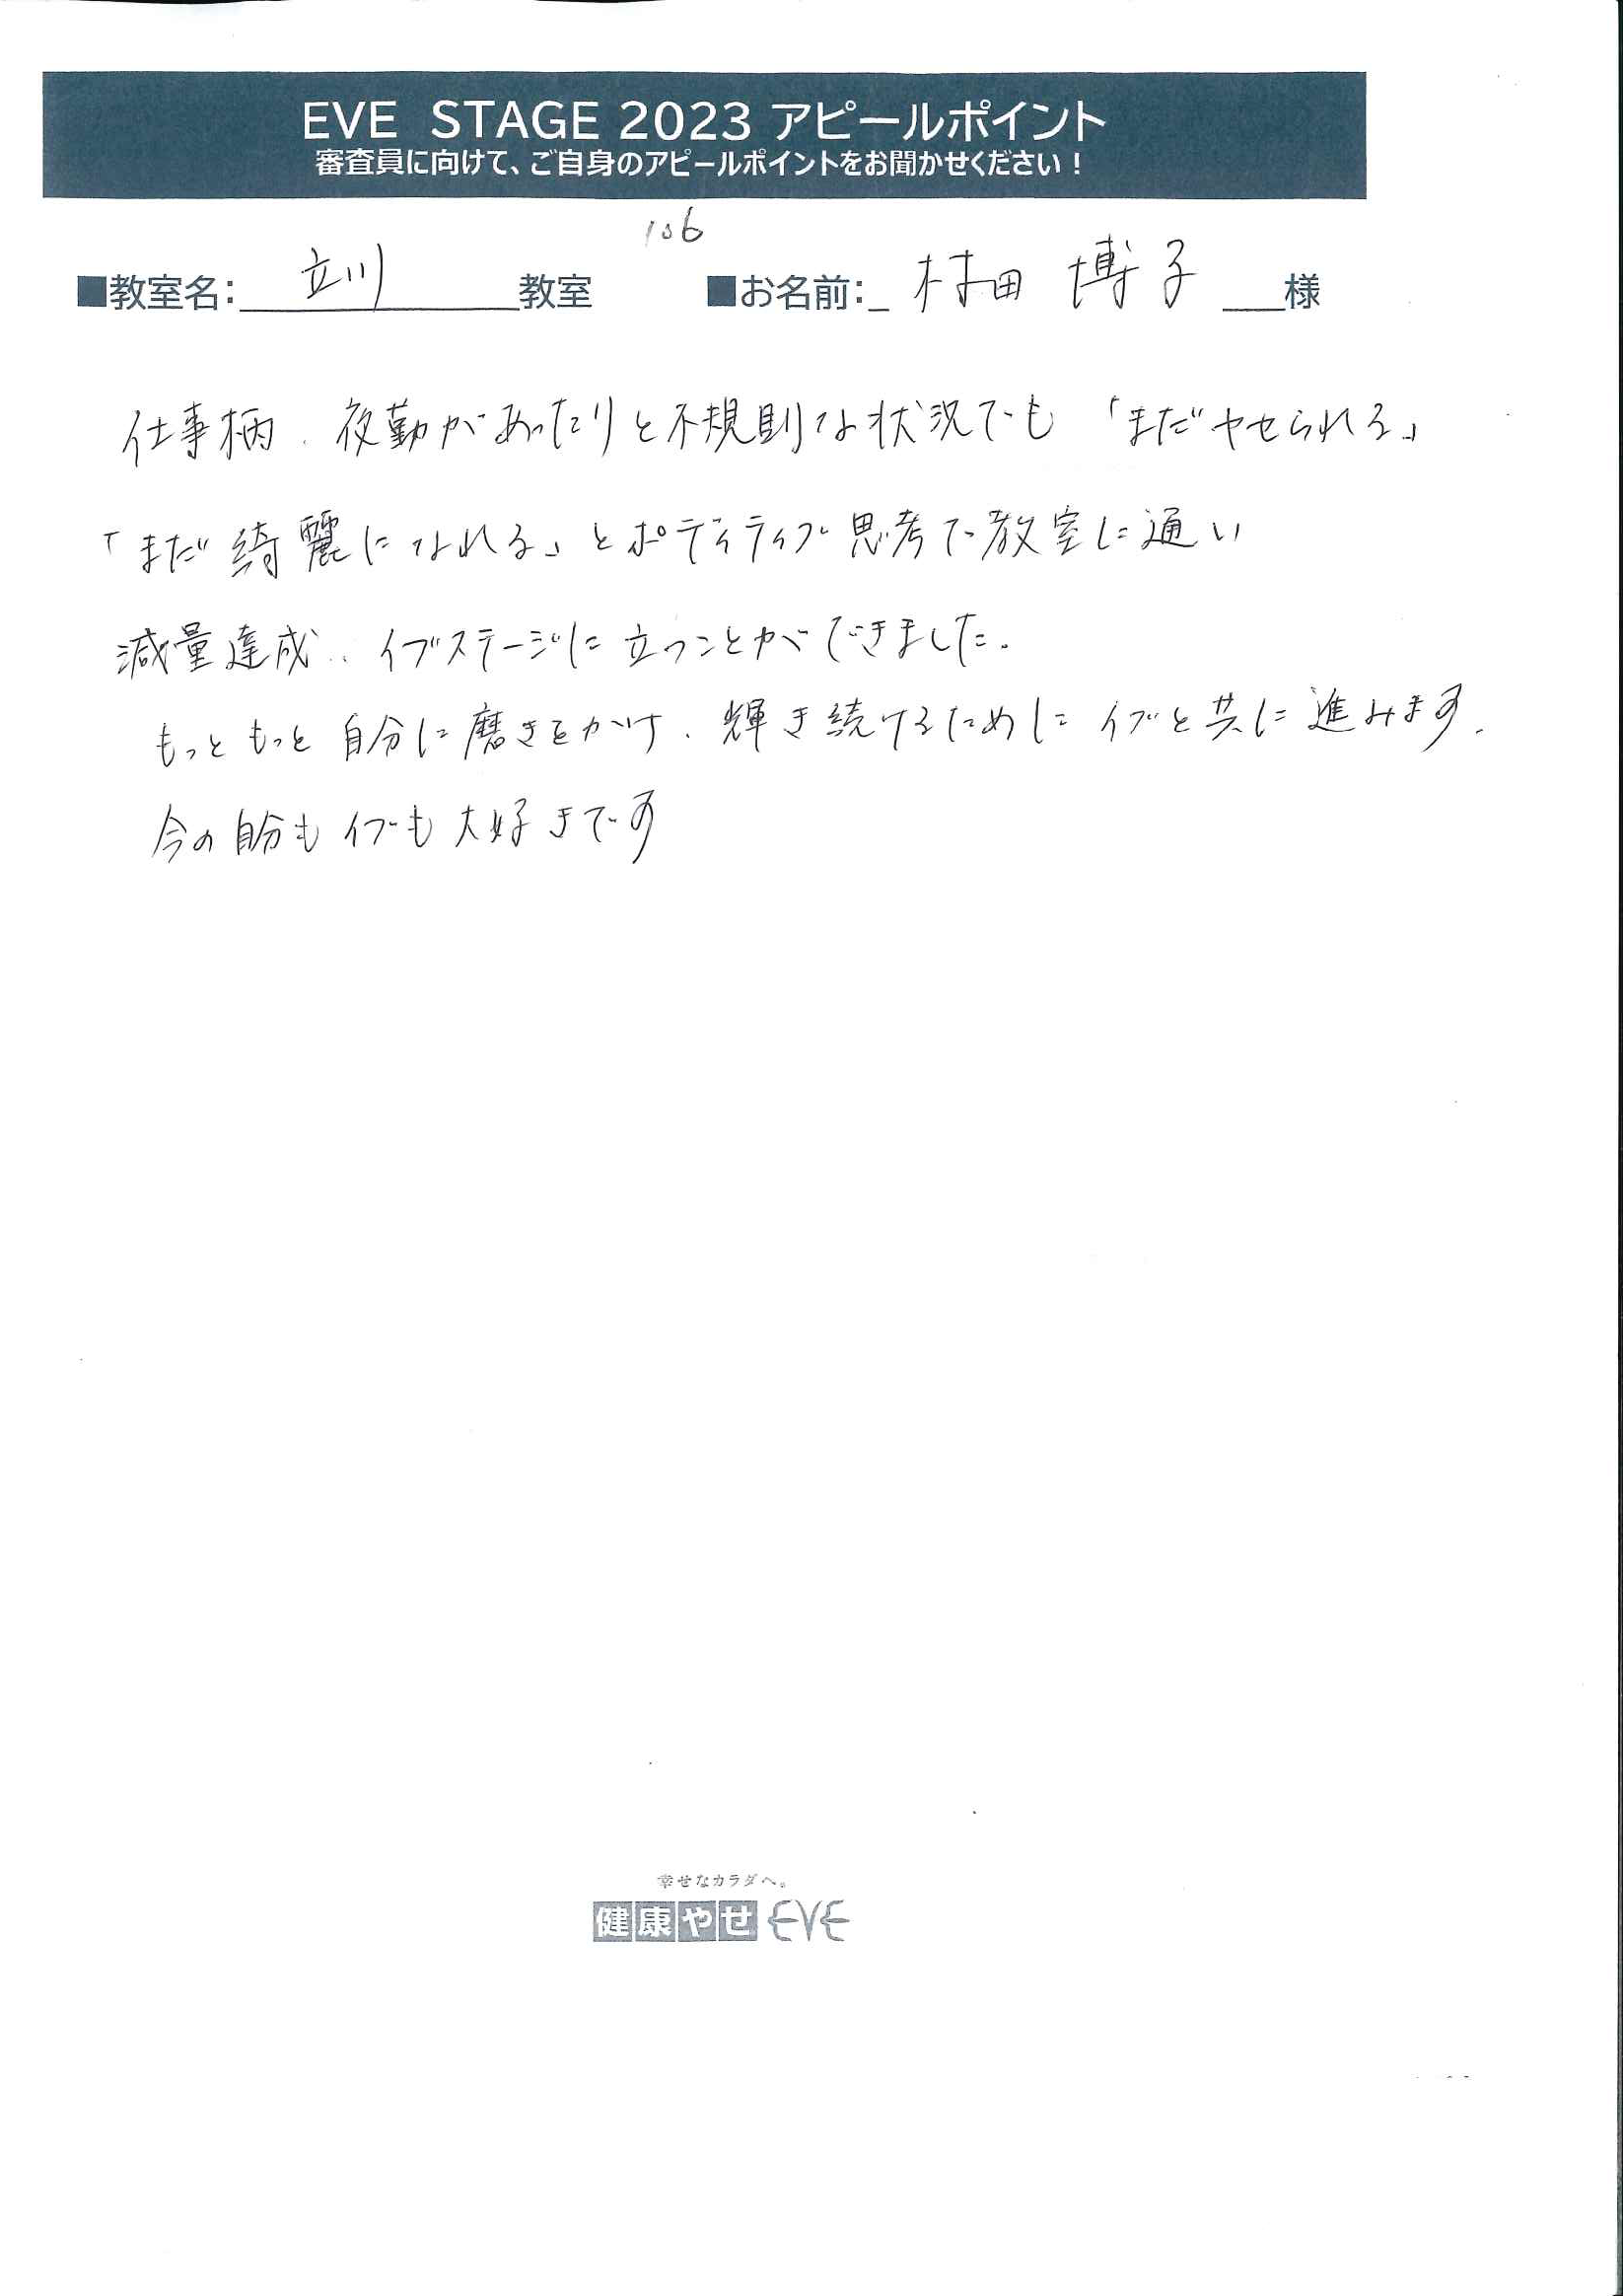 EVE STAGE 2023 アピールポイント
審査員に向けて、ご自身のアピールポイントをお聞かせください！
106
■教室名：立川教室 ■お名前：村田 博子 様
仕事柄、夜勤があったりと不規則な状況でも「まだやせられる」
「まだ綺麗になれる」とポディティブ思考で教室に通い
減量達成、イブステージに立つことができました。
もっともっと自分に磨きをかけ、輝き続けるためにイブと共に進みます。
今の自分もイブも大好きです
幸せなカラダへ。
健康やせ EVE